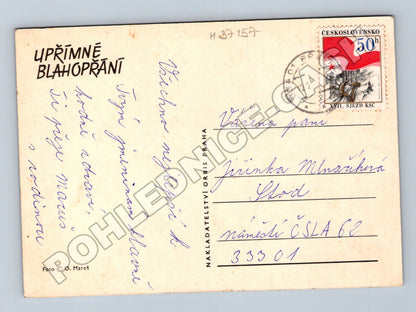 H 37 157
UPŘÍMNÉ
BLAHOPŘÁNÍ
Všechno nejlepší k
Tvým jmeninám hlavně
hodně zdraví,
Ti přeje Maruš
s rodinou
Foto O. Mareš
NAKLADATELSTVÍ ORBIS PRAHA
ČESKOSLOVENSKO
50 h
XVII. SJEZD KSČ
Vážená paní
Jiřinka Mlnaříková
Stod
náměstí ČSLA 62
33301
POHLEDNICE-CZ.CZ